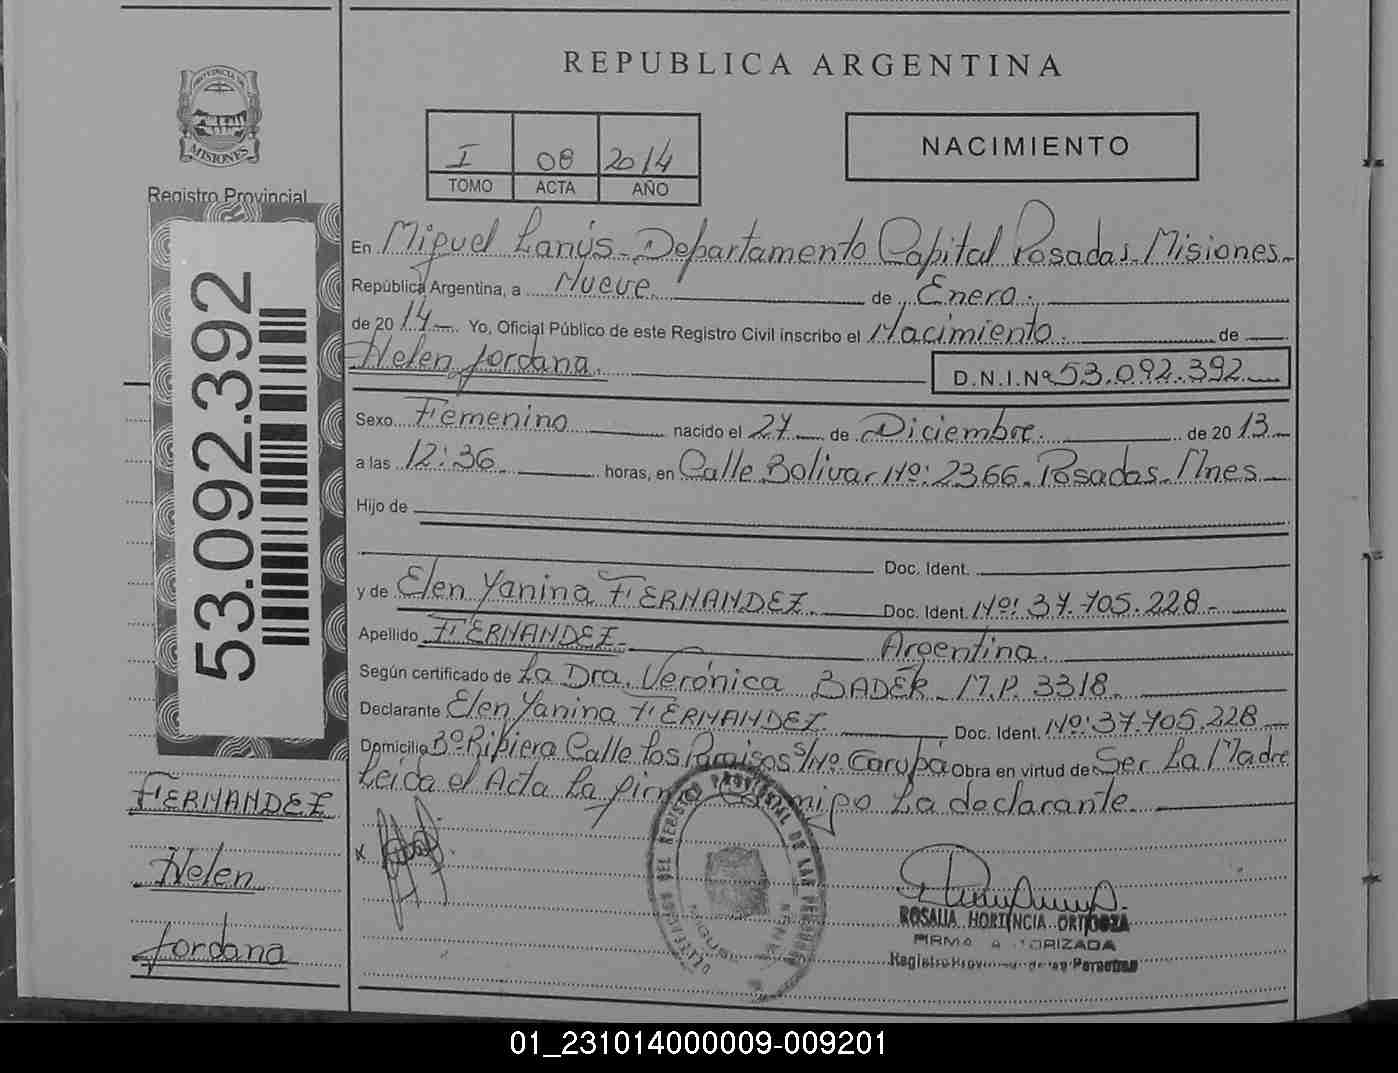 REPUBLICA ARGENTINA
PROVINCIA DE
MISIONES
Registro Provincial
I 08 2014
TOMO ACTA AÑO
NACIMIENTO
53.092.392
En Miguel Lanús - Departamento Capital Posadas - Misiones -
República Argentina, a Nueve de Enero.
de 2014 Yo, Oficial Público de este Registro Civil inscribo el Nacimiento de
Helen Jordana. D.N.I.Nº 53.092.392
Sexo Femenino nacido el 27 de Diciembre. de 2013
a las 12:36 horas, en Calle Bolivar Nº: 2366. Posadas - Mnes
Hijo de
Doc. Ident.
y de Elen Yanina FERNANDEZ Doc. Ident. Nº: 37.705.228 -
Apellido FERNANDEZ - Argentina.
Según certificado de La Dra. Verónica BADER - M.P. 3318
Declarante Elen Yanina FERNANDEZ Doc. Ident. Nº: 37.705.228
Domicilio Bº Ribiera Calle Los Paraisos s/Nº Garupá Obra en virtud de Ser La Madre
Leida el Acta La firma Conmigo La declarante
FERNANDEZ
Helen
Jordana
x
REGISTRO PROVINCIAL DE LAS PERSONAS
ROSALIA HORTENCIA ORTIGOZA
FIRMA AUTORIZADA
Registro Provincial de las Personas
01_231014000009-009201